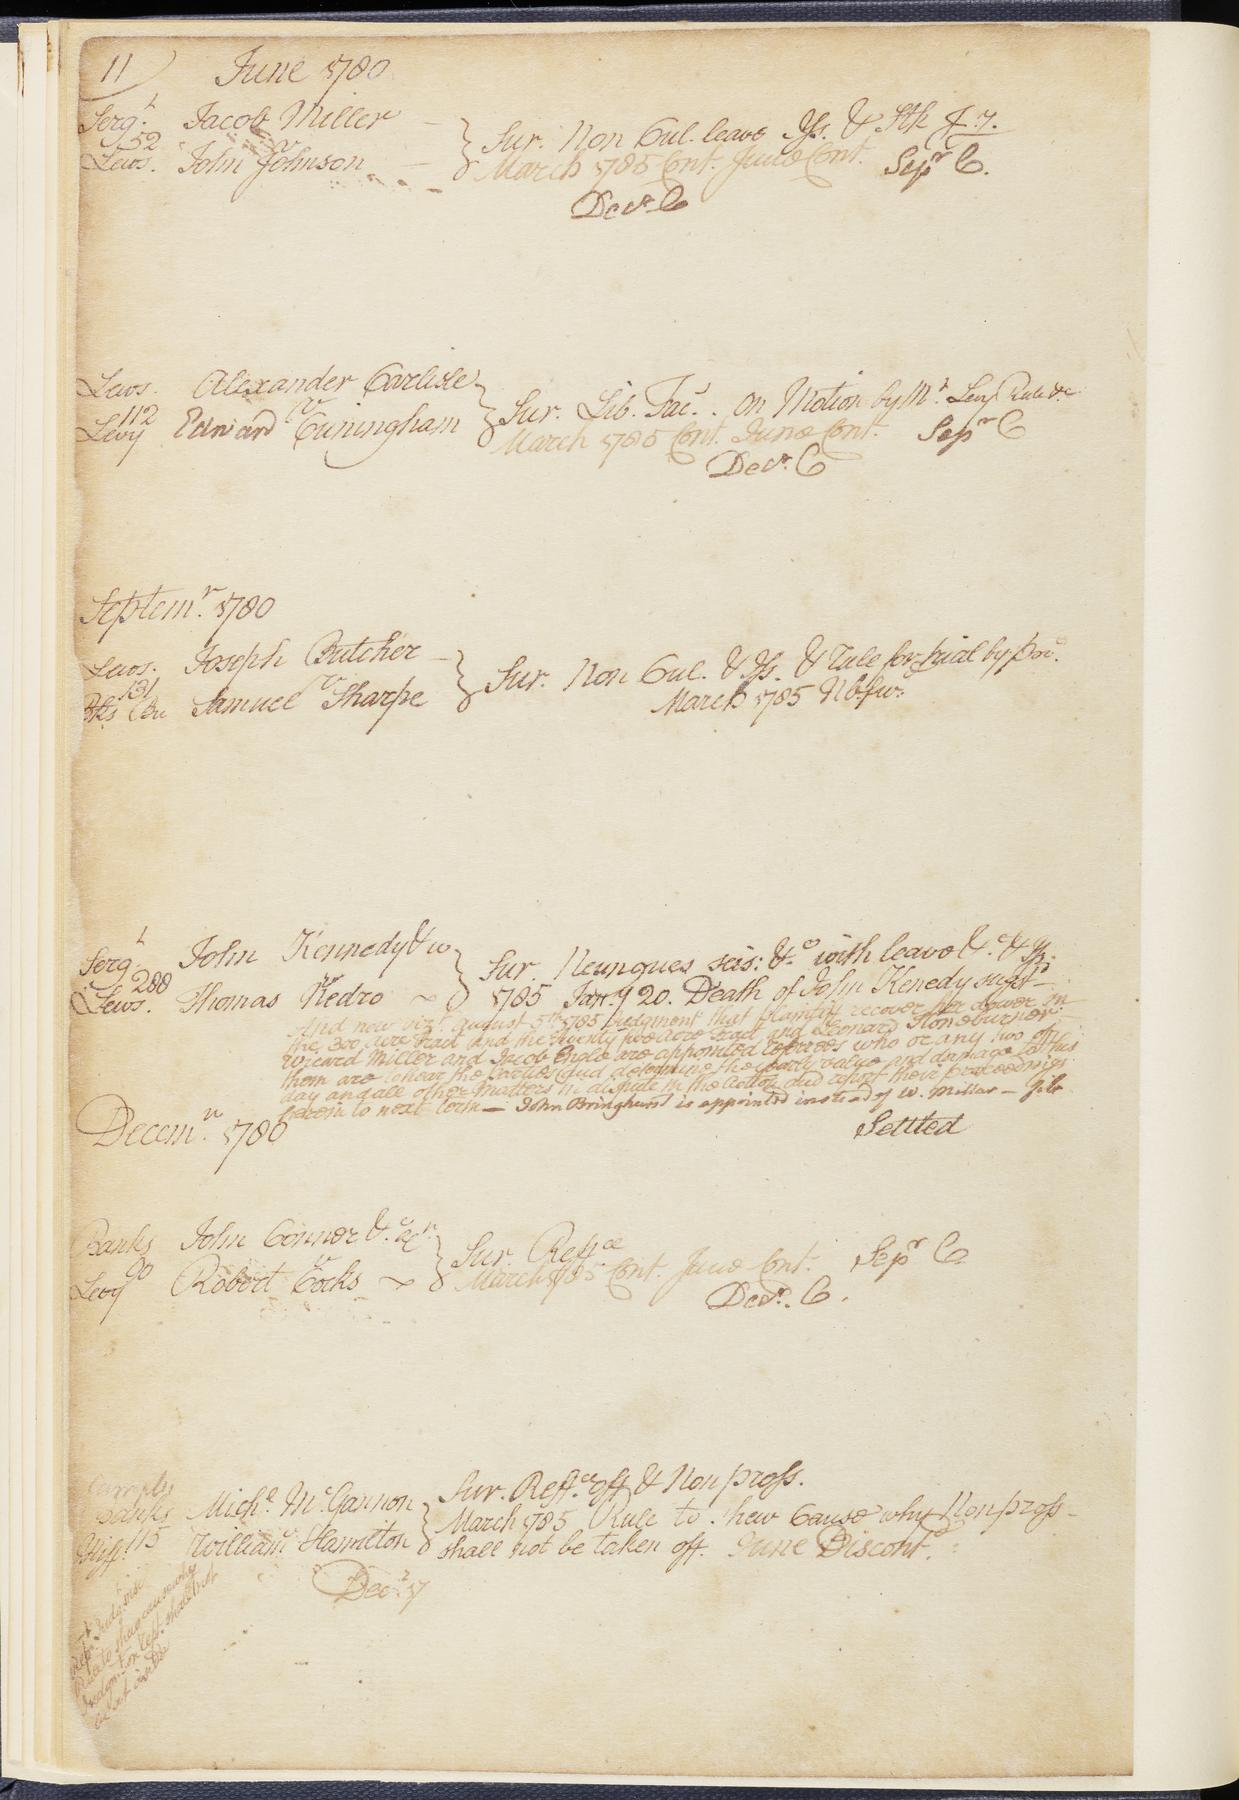 11 June 1780
Serg.t Jacob Miller
52 v
Lews. John Johnson
Sur. Non Cul. leave Iss. &
March 1785 Cont. June Cont. Sepr C.
Decr. C
Lews. Alexander Carlisle
112 v
Levy Edward Cuningham
Sur. Lib. Fac. . On Motion by Mr. Levy Rule &c
March 1785 Cont. June Cont. Sepr C
Decr. C
Septemr. 1780
Lews. Joseph Butcher
131 v
Samuel Sharpe
Sur. Non Cul. & Iss. & Rule for trial by Prov.
March 1785
Serg.t John Kennedy & w
288 v
Lews. Thomas Nedro
Sur. Neunques seis: &c. with leave &c. & Iss.
1785 Jany 20. Death of John Kenedy sugt
And now vizt. august 5th 1785 Judgment that plaintiff recover her dower in
the 300 acre Tract and the twenty five acre Tract and Leonard Stoneburner
Wicard Miller and Jacob Engle are appointed referees who or any two of
them are to hear the parties and determine the yearly value and damage to this
day and all other matters in dispute in the action and report their proceedings
herein to next term — John Bringhurst is appointed instead of W. Miller —
Settled
Decemr. 1780
Banks John Connor &c.
90 v
Levy Robert Cocks
Sur. Reffce
March 1785 Cont. June Cont. Sepr C
Decr. C.
Banks Michl. McGannon
115 v
William Hamilton
Sur. Reffce. off & Non pross.
March 1785 Rule to shew Cause why Non pross
shall not be taken off. June Discont.
Decr. 17
Rule to shew cause why
be set aside